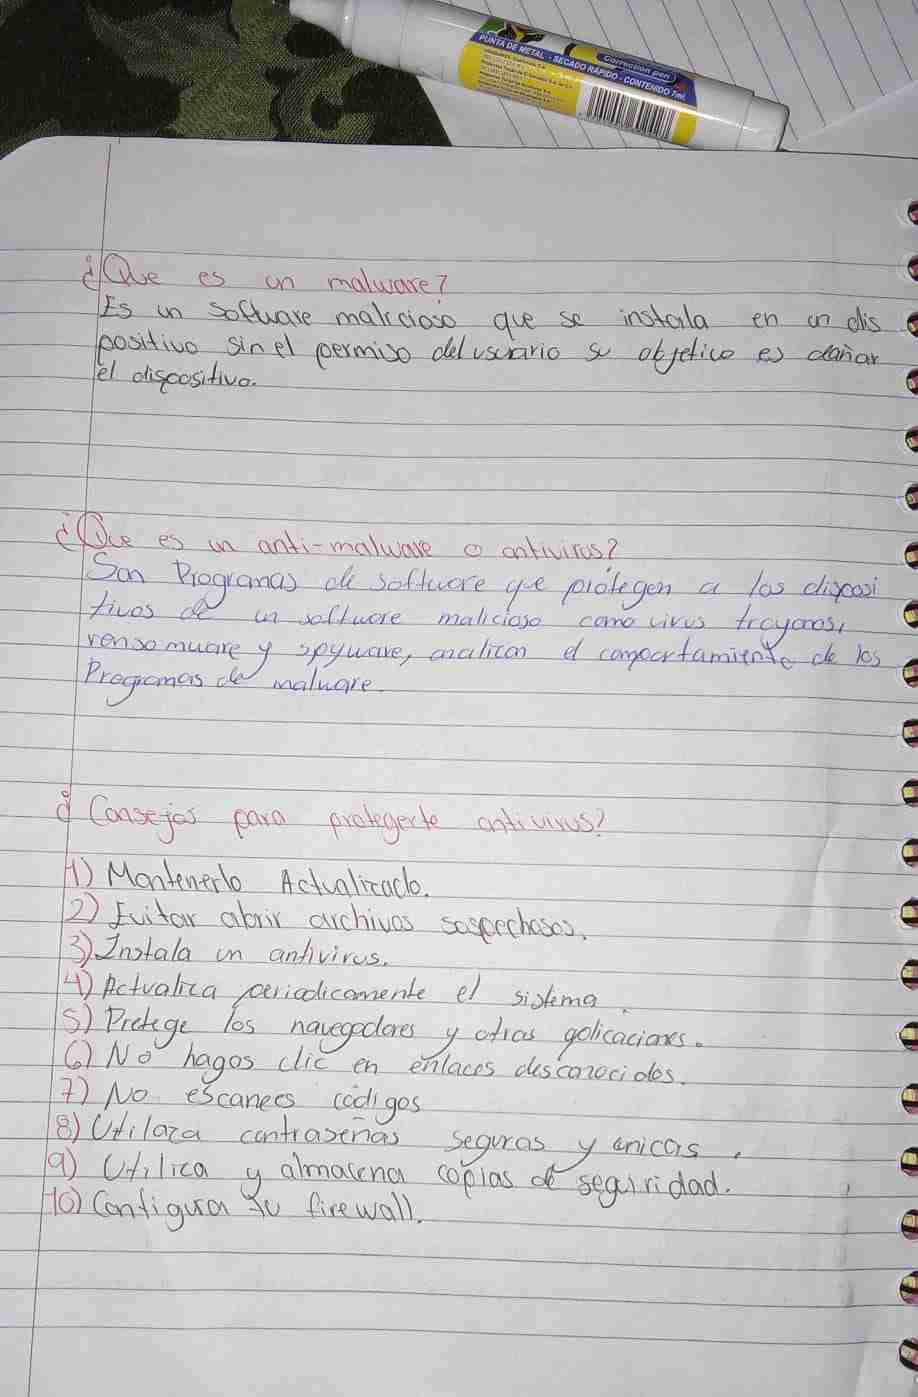 PUNTA DE METAL - SECADO RAPIDO - CONTENIDO 7ml.
Correction pen
¿Que es un malware?
Es un software malicioso que se instala en un dis
positivo sin el permiso del usuario su objetivo es dañar
el dispositivo.
¿Que es un anti-malware o antivirus?
Son Programas de software que protegen a los disposi
tivos de un software malicioso como virus troyanos,
ransomware y spyware, analican el comportamiento de los
Programas de malware.
¿Consejos para protegerte antivirus?
1) Mantenerlo Actualizado.
2) Evitar abrir archivos sospechosos.
3) Instala un antivirus.
4) Actualiza periodicamente el sistema.
5) Protege los navegadores y otras aplicaciones.
6) No hagas clic en enlaces desconocidos.
7) No escanees códigos
8) Utilaza contraseñas seguras y unicas.
9) Utilica y almacena copias de seguridad.
10) Configura tu firewall.